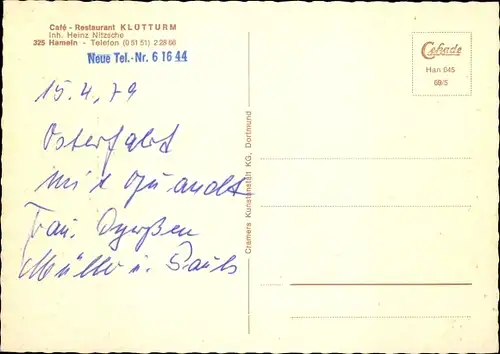 Café - Restaurant KLÜTTURM
Inh. Heinz Nitzsche
325 Hameln - Telefon (0 51 51) 2 28 66
Neue Tel.-Nr. 6 16 44
15.4.79
Osterfahrt
mit
Frau
Müller u. Pauls
Cramers Kunstanstalt KG, Dortmund
Cekade
Han 045
68/5